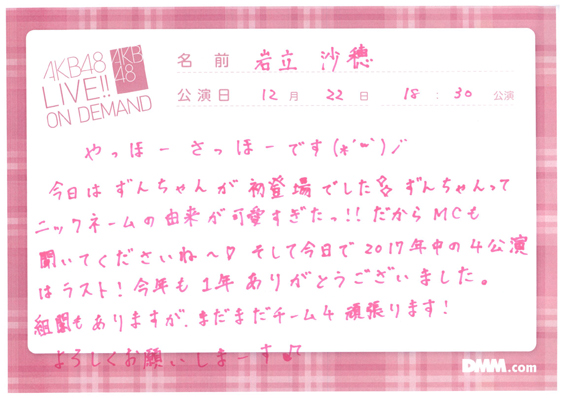 AKB48
LIVE!!
ON DEMAND
AKB
48
名前 岩立 沙穂
公演日 12月 22日 18:30 公演
やっほー さっほーです(*´˘`)ノ
今日は ずんちゃんが 初登場でした ずんちゃんって
ニックネームの由来が可愛すぎたっ!!だからMCも
聞いてくださいね〜♡ そして今日で2017年中の4公演
はラスト!今年も1年ありがとうございました。
組閣もありますが、まだまだチーム4 頑張ります!
よろしくお願いしまーす♪
DMM.com